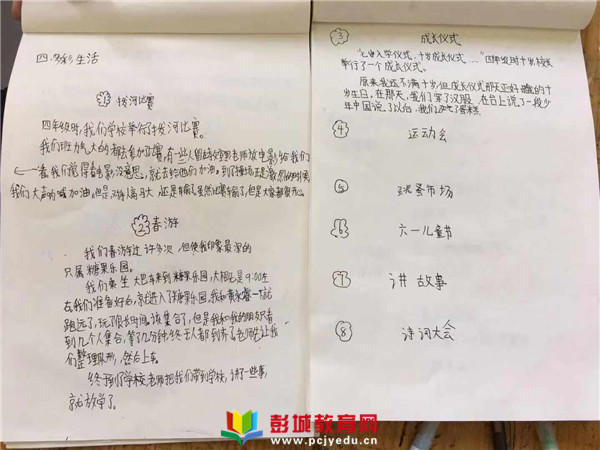 四.多彩生活
① 拔河比赛
四年级时,我们学校举行了拔河比赛。
我们班力气大的都去参加比赛,有一些人留在
老师放电影给我们
看我们觉得看电影没意思,就去给他们加油。到了
激烈的时候,
我们大声的喊加油。但是对手人高马大
还是输了。虽然比赛输了,但是大家都很开心。
② 春游
我们春游过许多次,但使我印象最深的
只属糖果乐园。
我们乘坐大巴车来到糖果乐园,大概是9:00左
右,我们准备好后,就进入了糖果乐园。我和
一起就
跑远了,玩了很长时间,该集合了,但是我和我的朋友只看
到几个人集合,等了几分钟,终于人都到齐了,老师先让我
们整理队形,然后上车。
终于到了学校,老师把我们带到学校,讲了一些事,
就放学了。
③ 成长仪式
入学仪式,十岁成长仪式……"四年级时十岁
举行了一个成长仪式。
原来我还不满十岁,但成长仪式那天正好
我的十
岁生日。在那天,我们穿了汉服,在台上说了一段少
年中国说。
我们还吃了蛋糕
④ 运动会
⑤ 跳蚤市场
⑥ 六一儿童节
⑦ 讲故事
⑧ 诗词大会
彭城教育网
www.pcjyedu.cn